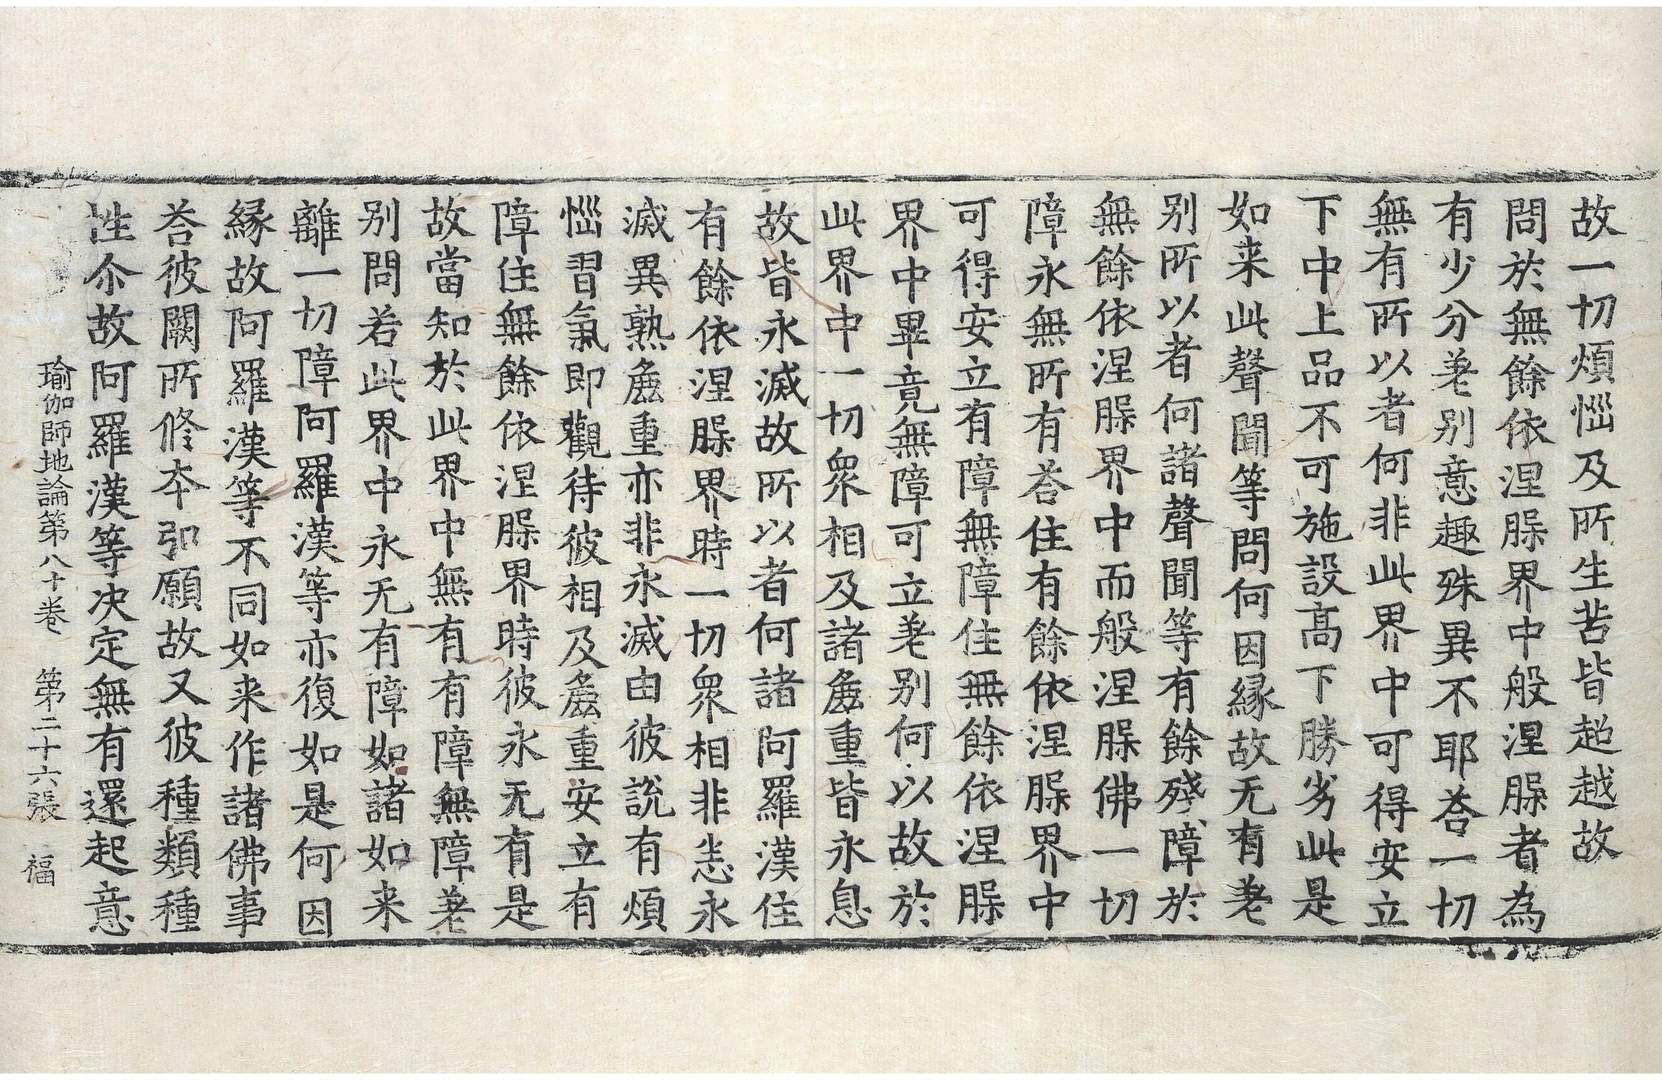 故一切煩惱及所生苦皆超越故
問於無餘依涅槃界中般涅槃者為
有少分差别意趣殊異不耶荅一切
無有所以者何非此界中可得安立
下中上品不可施設髙下勝劣此是
如来此聲聞等問何因縁故无有差
别所以者何諸聲聞等有餘殘障於
無餘依涅槃界中而般涅槃佛一切
障永無所有荅住有餘依涅槃界中
可得安立有障無障住無餘依涅槃
界中畢竟無障可立差别何以故於
此界中一切衆相及諸麁重皆永息
故皆永滅故所以者何諸阿羅漢住
有餘依涅槃界時一切衆相非恙永
滅異熟麁重亦非永滅由彼說有煩
惱習氣即觀待彼相及麁重安立有
障住無餘依涅槃界時彼永无有是
故當知於此界中無有有障無障差
别問若此界中永无有障如諸如来
離一切障阿羅漢等亦復如是何因
縁故阿羅漢等不同如来作諸佛事
荅彼闕所修夲弘願故又彼種類種
性尒故阿羅漢等决定無有還起意
瑜伽師地論第八十卷 第二十六張 福